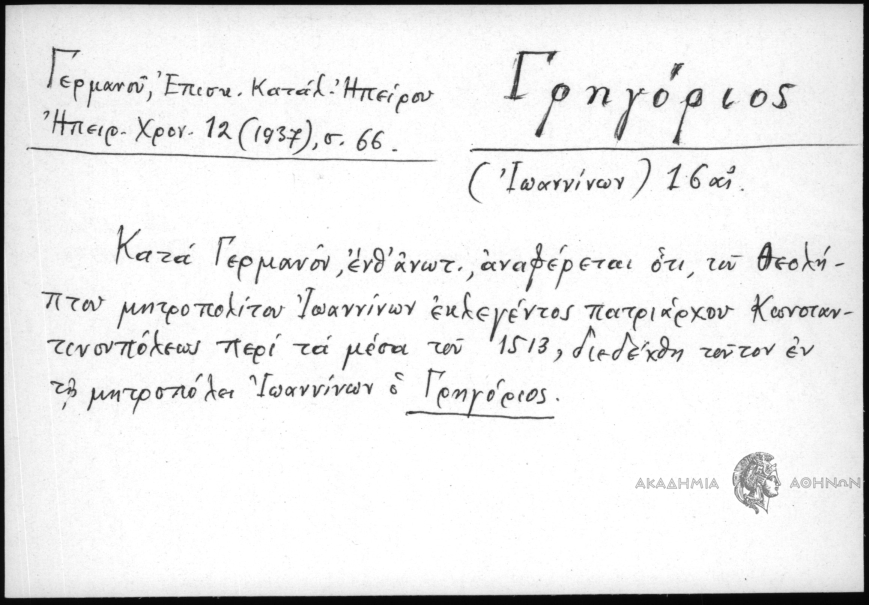 Γερμανοῦ, Ἐπισκ. Κατάλ. Ἠπείρου
Ἠπειρ. Χρον. 12 (1937), σ. 66.
Γρηγόριος
(Ἰωαννίνων) 16 αἰ.
Κατά Γερμανόν, ἐνθ' ἀνωτ., ἀναφέρεται ὅτι, τοῦ Θεολή-
πτου μητροπολίτου Ἰωαννίνων ἐκλεγέντος πατριάρχου Κωνσταν-
τινουπόλεως περί τά μέσα τοῦ 1513, διεδέχθη τοῦτον ἐν
τῇ μητροπόλει Ἰωαννίνων ὁ Γρηγόριος.
ΑΚΑΔΗΜΙΑ ΑΘΗΝΩΝ